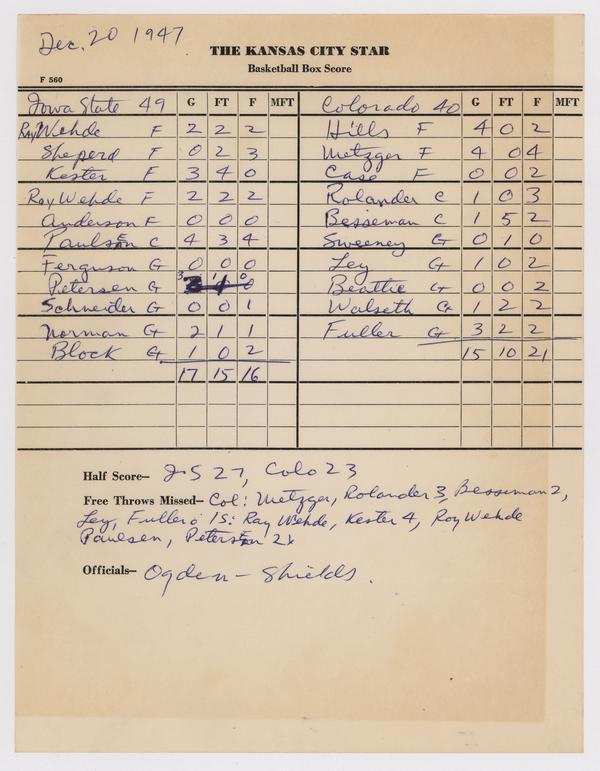 Dec. 20 1947
THE KANSAS CITY STAR
Basketball Box Score
F 560
Iowa State 49 G FT F MFT Colorado 40 G FT F MFT
Ray Wehde F 2 2 2 Hills F 4 0 2
Sheperd F 0 2 3 Metzger F 4 0 4
Kester F 3 4 0 Case F 0 0 2
Roy Wehde F 2 2 2 Rolander C 1 0 3
Anderson F 0 0 0 Besseman C 1 5 2
Paulsen C 4 3 4 Sweeney G 0 1 0
Ferguson G 0 0 0 Ley G 1 0 2
Petersen G 3 1 0 Beattie G 0 0 2
Schneider G 0 0 1 Walseth G 1 2 2
Norman G 2 1 1 Fuller G 3 2 2
Block G 1 0 2 15 10 21
17 15 16
Half Score— IS 27, Colo 23
Free Throws Missed— Col: Metzger, Rolander 3, Besseman 2,
Ley, Fuller; IS: Ray Wehde, Kester 4, Roy Wehde
Paulsen, Petersen 2
Officials— Ogden – Shields.